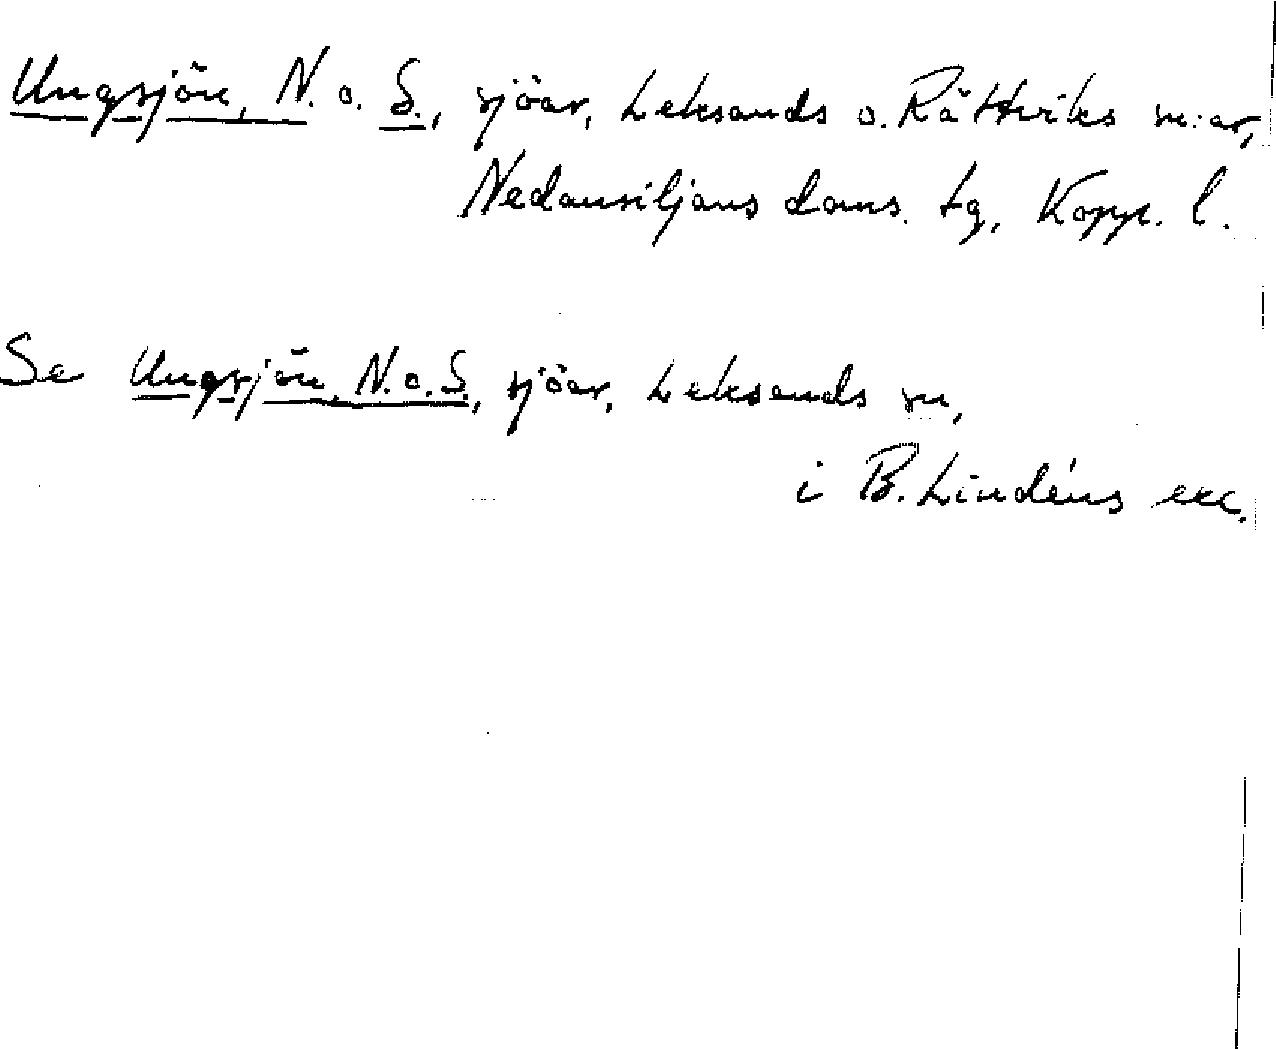 Ungsjön, N. o. S., sjöar, Leksands o. Rättviks sn:ar,
Nedansiljans doms. tg, Kopp. l.
Se Ungsjön, N. o. S., sjöar, Leksands sn,
i B. Lindéns exc.